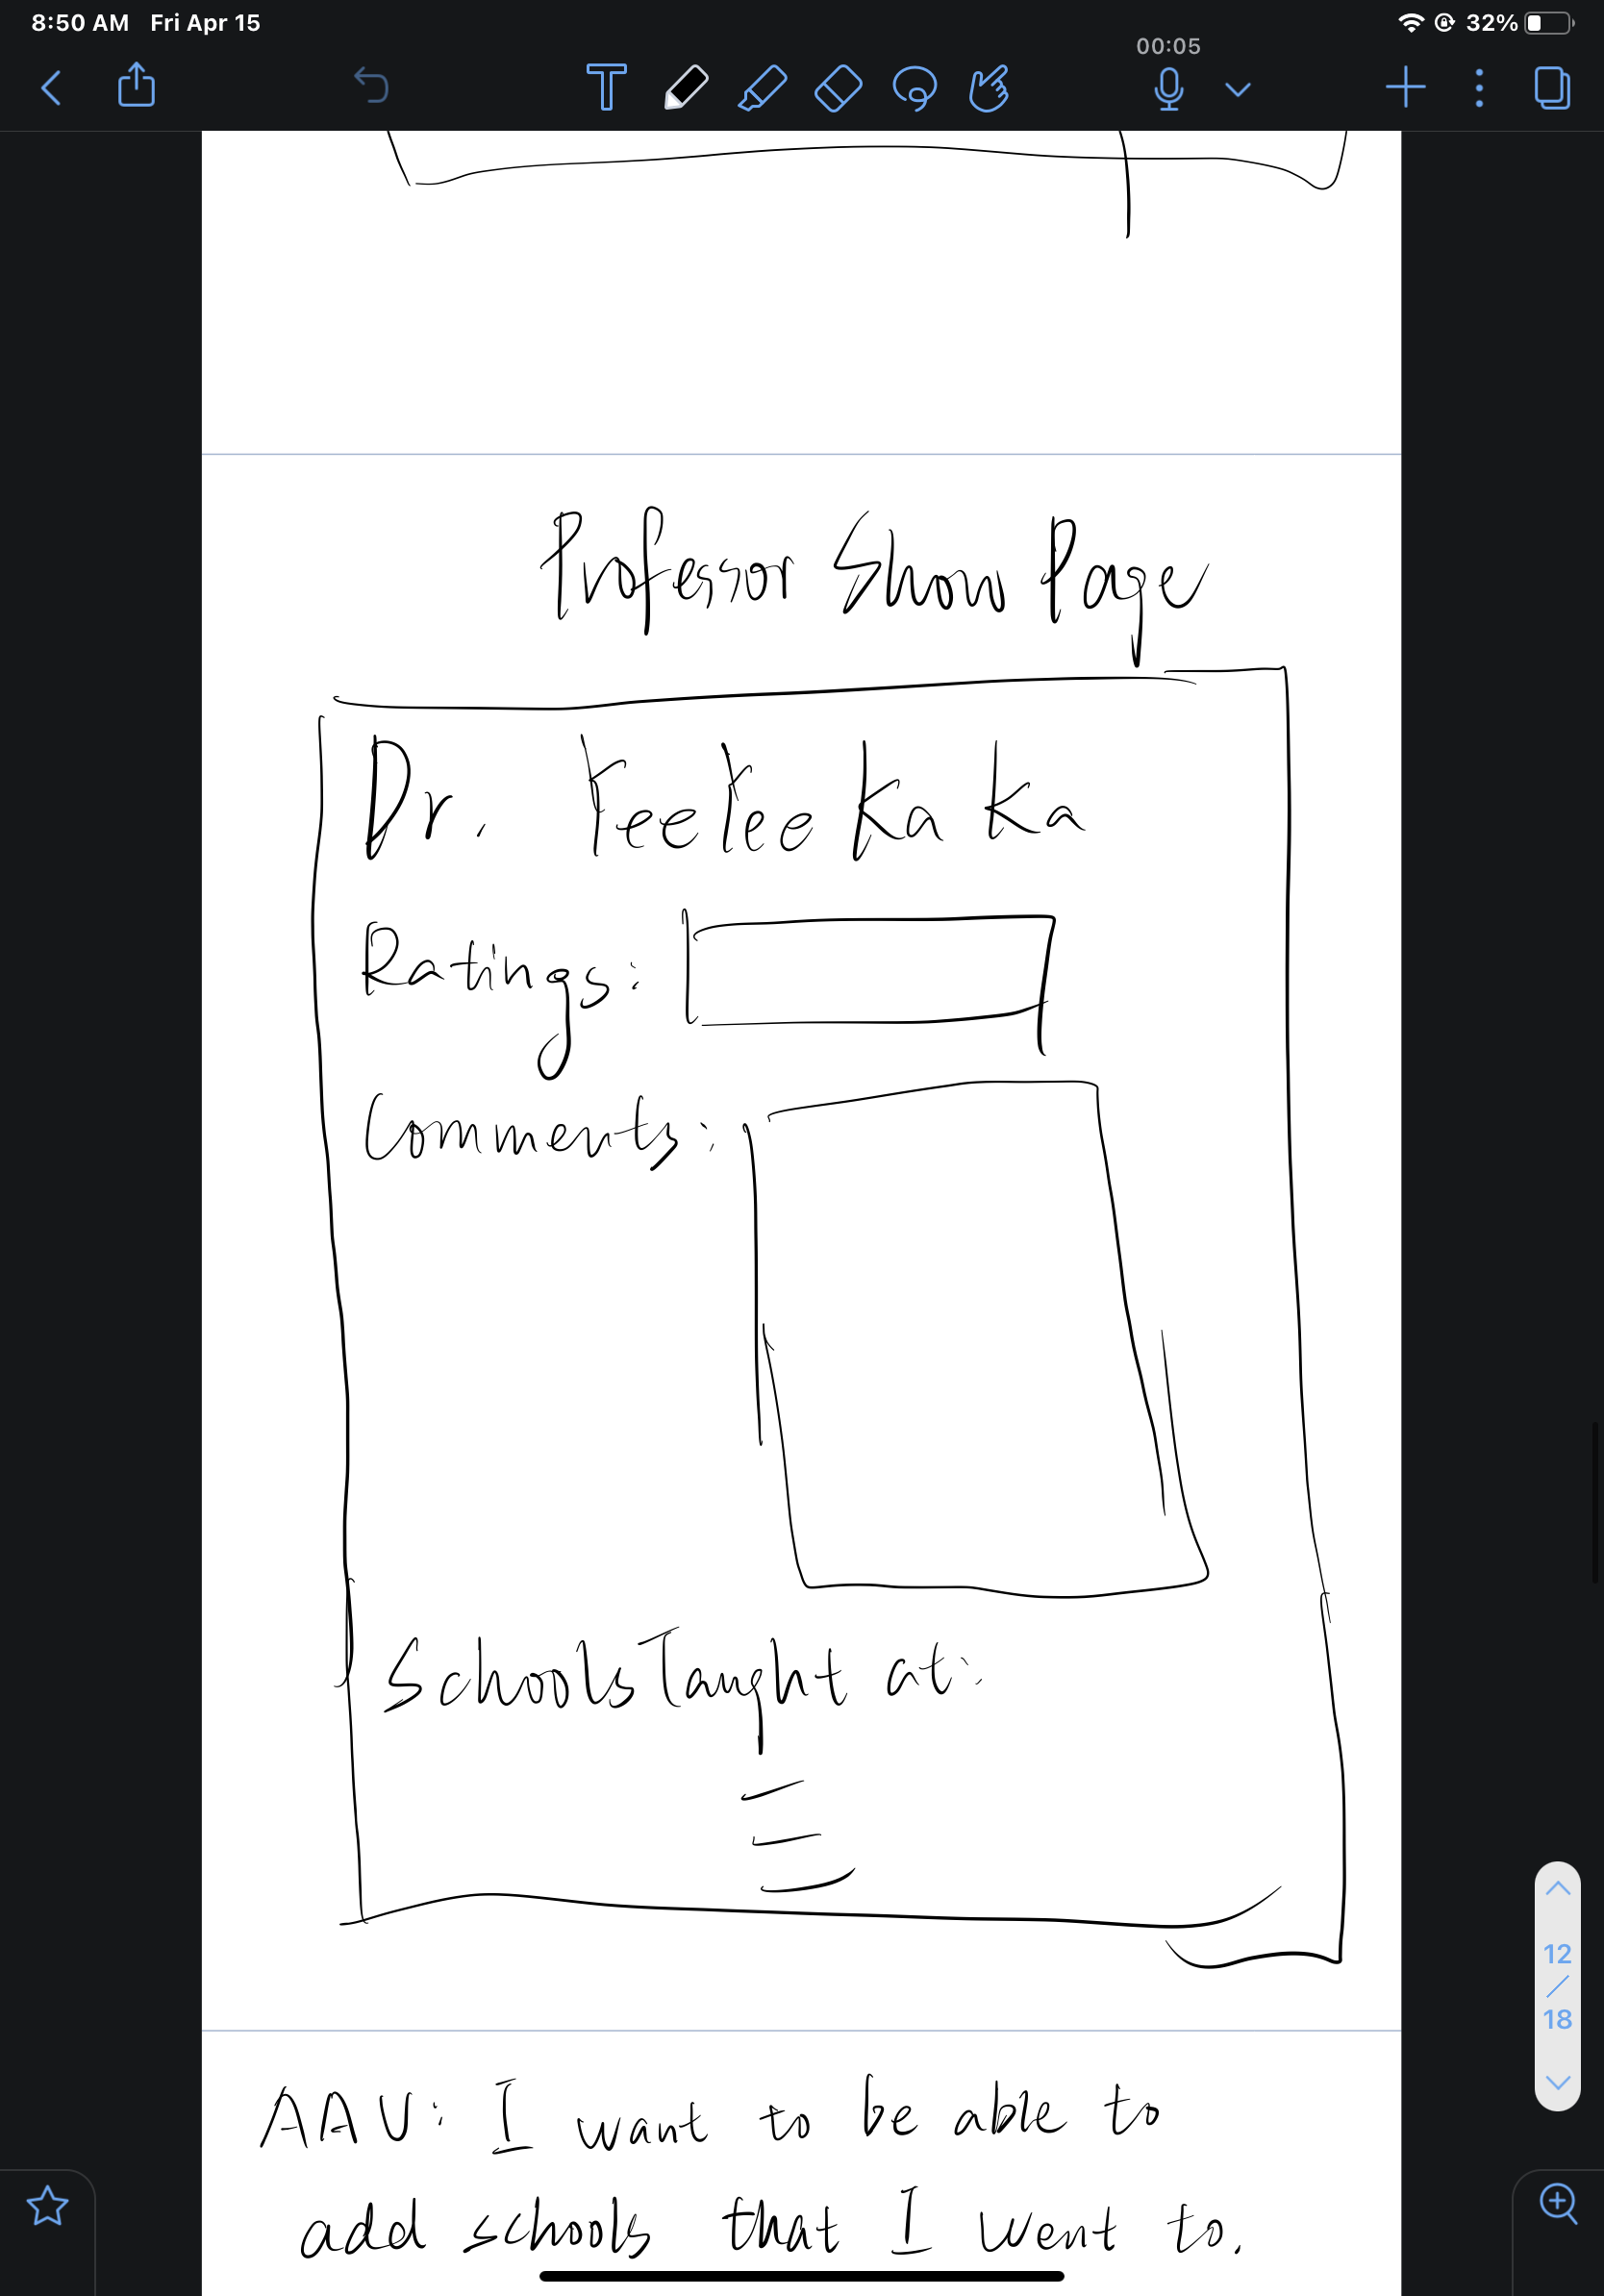 8:50 AM Fri Apr 15
32%
00:05
Professor Show Page
Dr. YeeYee Ka Ka
Ratings:
Comments:
Schools Taught at:
12
/
18
AAU: I want to be able to
add schools that I went to.